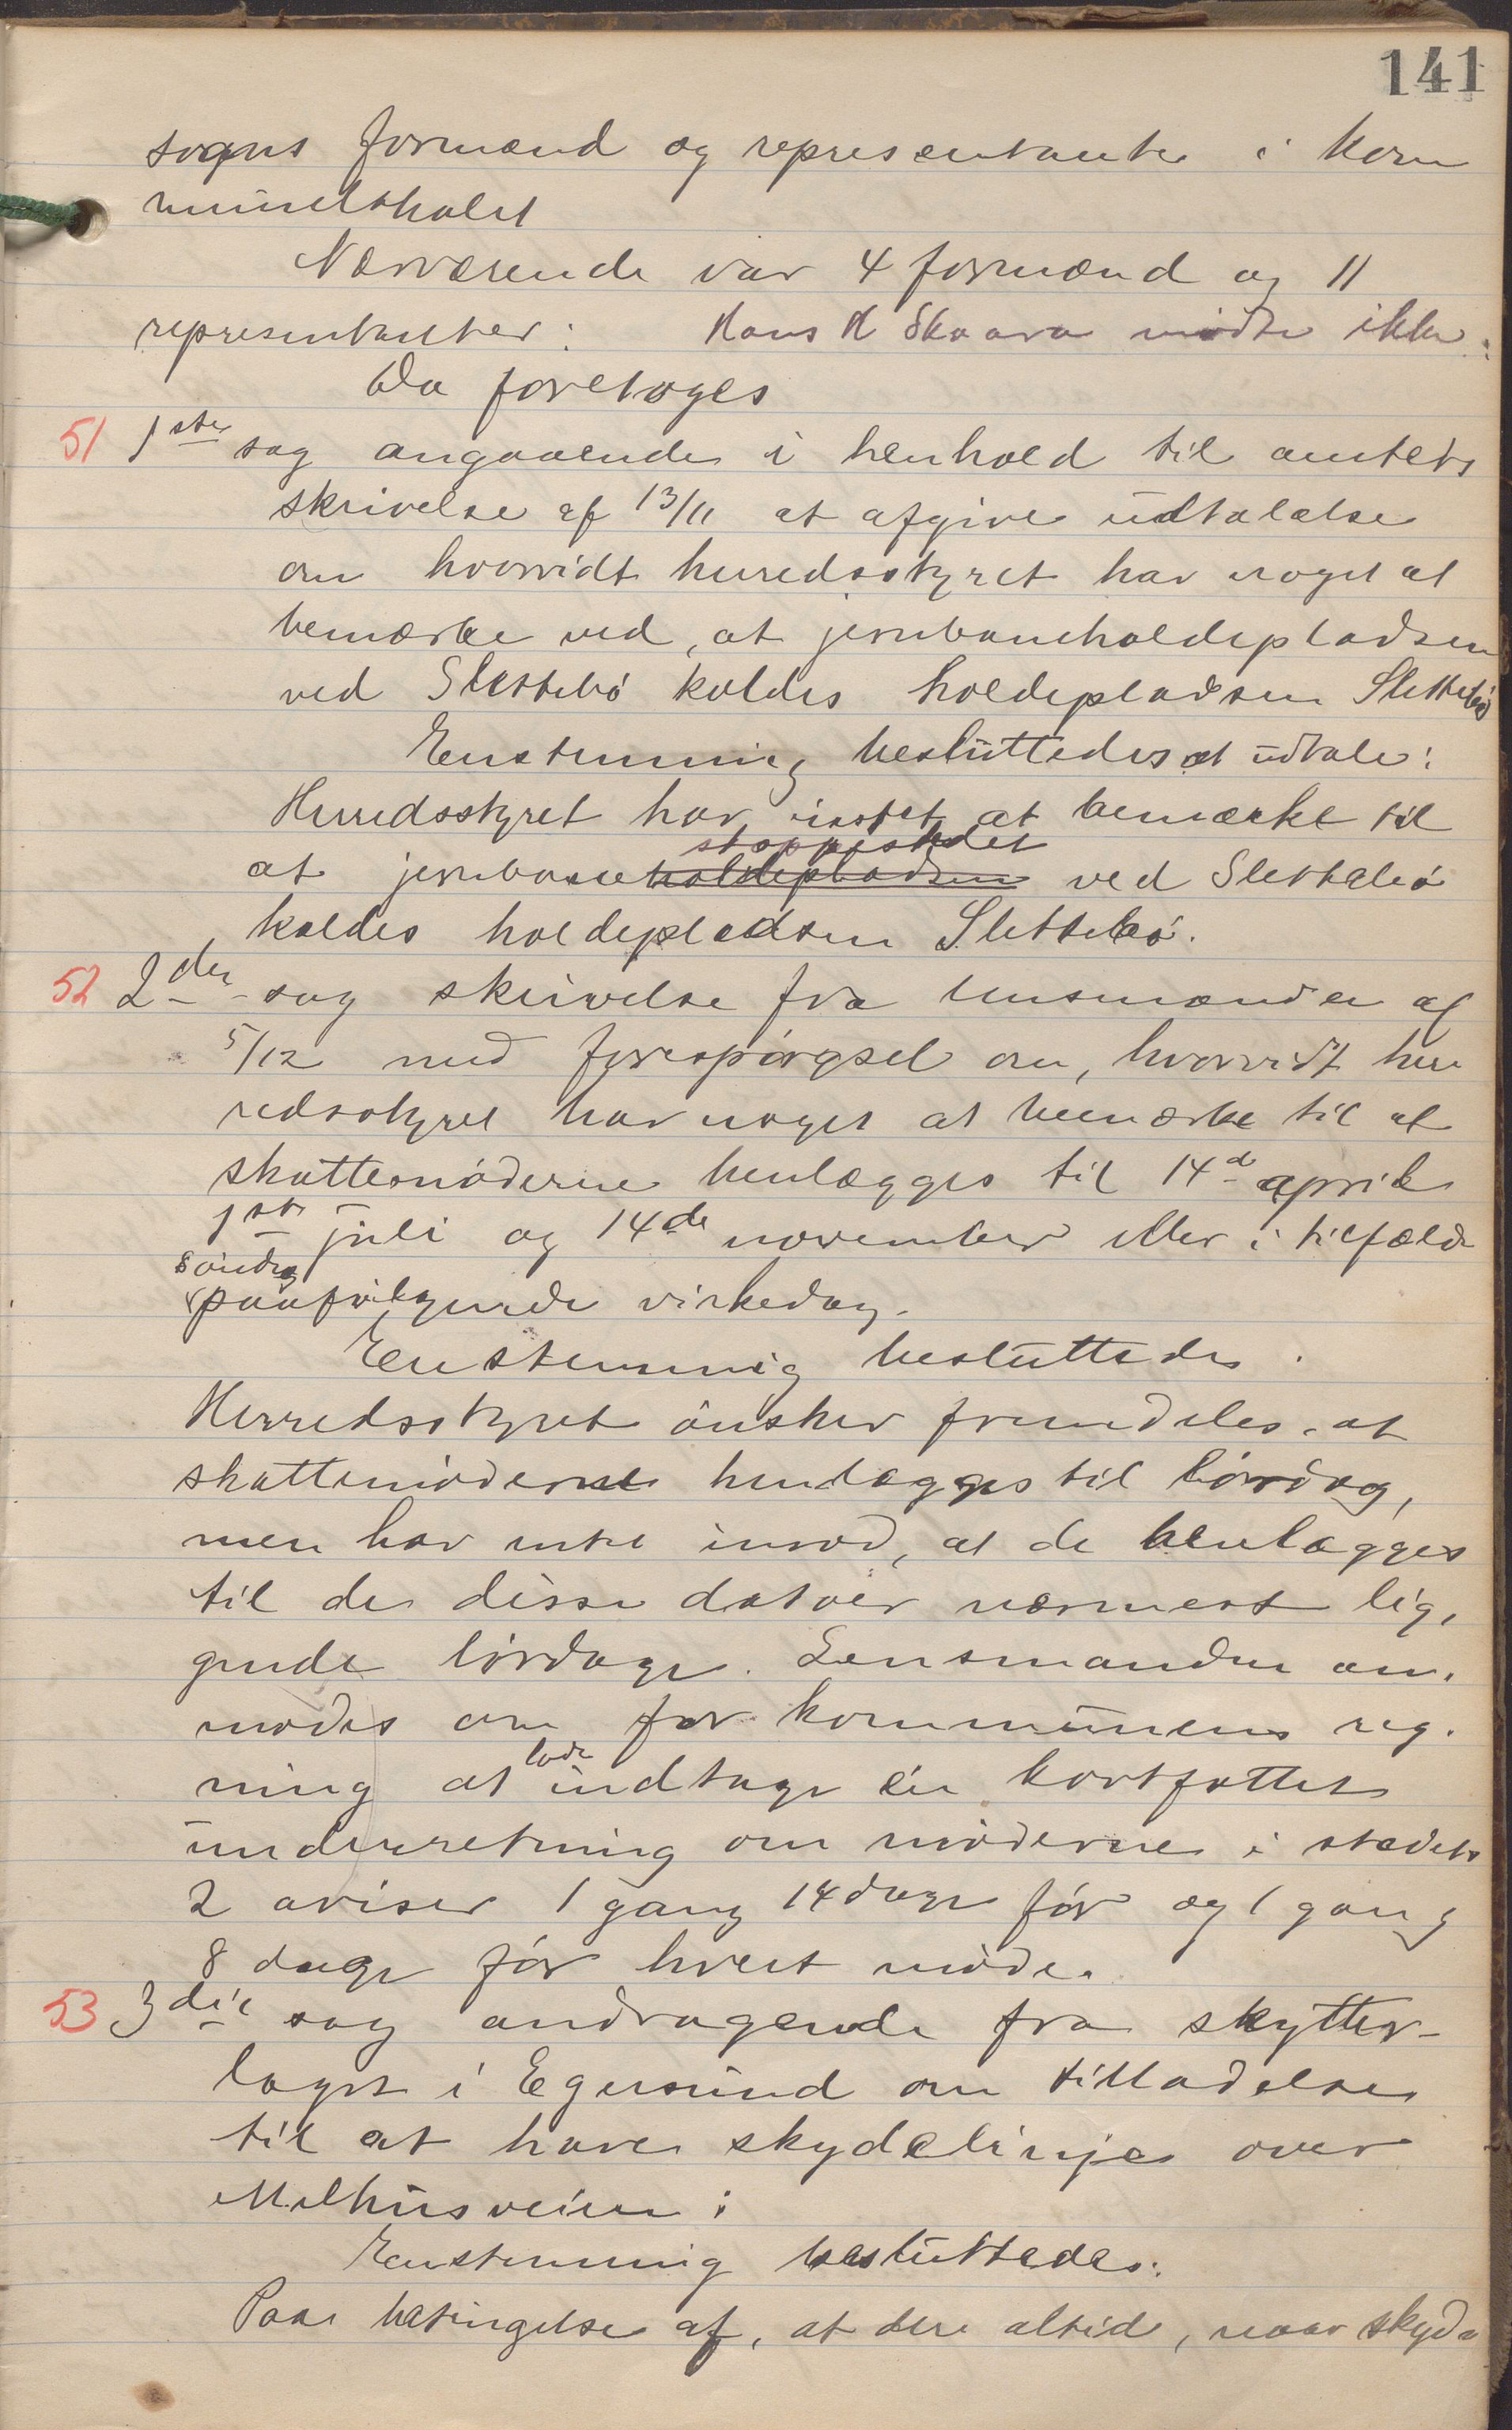 141
sogns formænd og repræsentanter i kom
munelokalet
Nærværende var 4 formænd og 11
repræsentanter: Hans H Skaara mødte ikke.
Da foretoges
51 1ste sag angaaende i henhold til amtets
skrivelse af 13/11 at afgive udtalelse
om hvorvidt herredsstyret har noget at
bemærke ved, at jernbaneholdepladsen
ved Slettebø kaldes holdepladsen Slettebø
Enstemmig besluttedes at udtale:
Herredsstyret har intet at bemærke til
stoppestedet
at jernbaneholdepladsen ved Slettebø
kaldes holdepladsen Slettebø.
52 2den sag skrivelse fra lensmanden af
5/12 med forespørgsel om, hvorvidt her
redsstyret har noget at bemærke til at
skattemøderne henlægges til 14de april
1ste juli og 14de november eller i tilfælde
søndag
paafølgende virkedag.
Enstemmig besluttedes.
Herredsstyret ønsker fremdeles, at
skattemøderne henlægges til lørdag,
men har intet imod, at de henlægges
til de disse datoer nærmest lig,
gende lørdage. Lensmanden an,
modes om for kommunens reg.
lade
ning at indtage en kortfattet
underretning om møderne i stedets
2 aviser 1 gang 14 dage før og 1 gang
8 dage før hvert møde.
53 3die sag andragende fra skytter-
laget i Egersund om tilladelse
til at have skydelinje over
Melhusveien:
Enstemmig besluttedes:
Paa betingelse af, at der altid, naar skyd